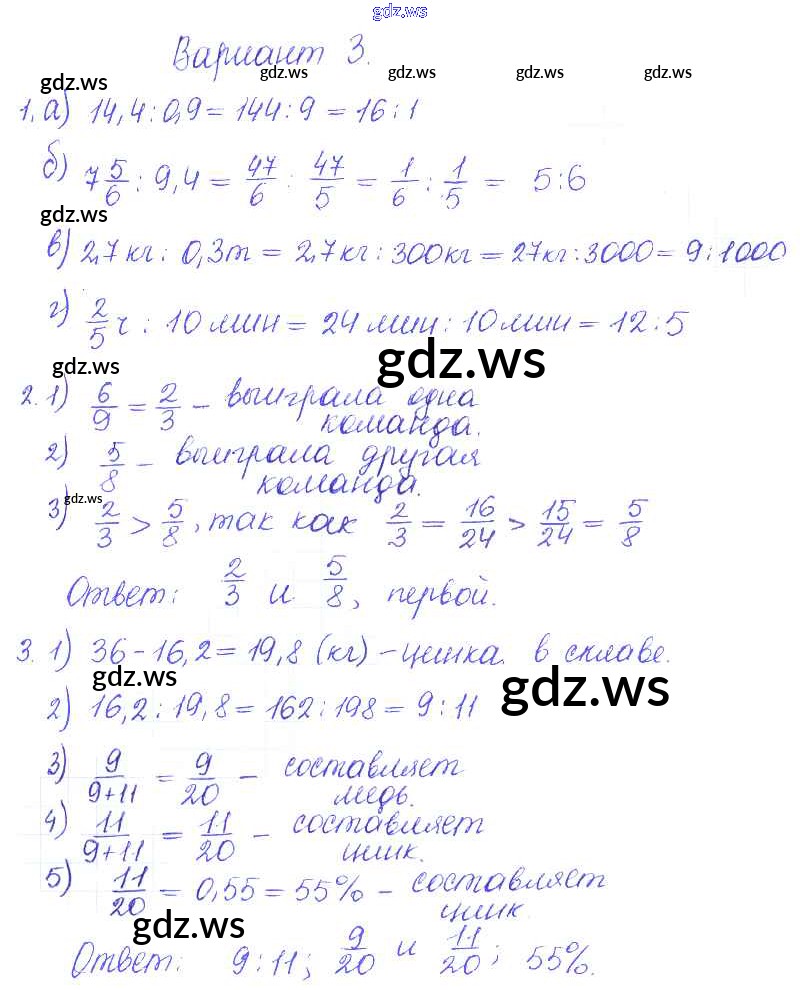 gdz.ws
Вариант 3.
gdz.ws gdz.ws gdz.ws gdz.ws gdz.ws
1. а) 14,4 : 0,9 = 144 : 9 = 16 : 1
б) 7 5/6 : 9,4 = 47/6 : 47/5 = 1/6 : 1/5 = 5 : 6
gdz.ws
в) 2,7 кг : 0,3 т = 2,7 кг : 300 кг = 27 кг : 3000 = 9 : 1000
г) 2/5 ч : 10 мин = 24 мин : 10 мин = 12 : 5
gdz.ws gdz.ws
2. 1) 6/9 = 2/3 – выиграла одна
команда.
2) 5/8 – выиграла другая
команда.
gdz.ws
3) 2/3 > 5/8, так как 2/3 = 16/24 > 15/24 = 5/8
Ответ: 2/3 и 5/8, первой.
3. 1) 36 – 16,2 = 19,8 (кг) – цинка в сплаве.
gdz.ws gdz.ws
2) 16,2 : 19,8 = 162 : 198 = 9 : 11
3) 9/9+11 = 9/20 – составляет
медь.
4) 11/9+11 = 11/20 – составляет
цинк.
5) 11/20 = 0,55 = 55% – составляет
цинк.
gdz.ws
Ответ: 9 : 11; 9/20 и 11/20; 55%.